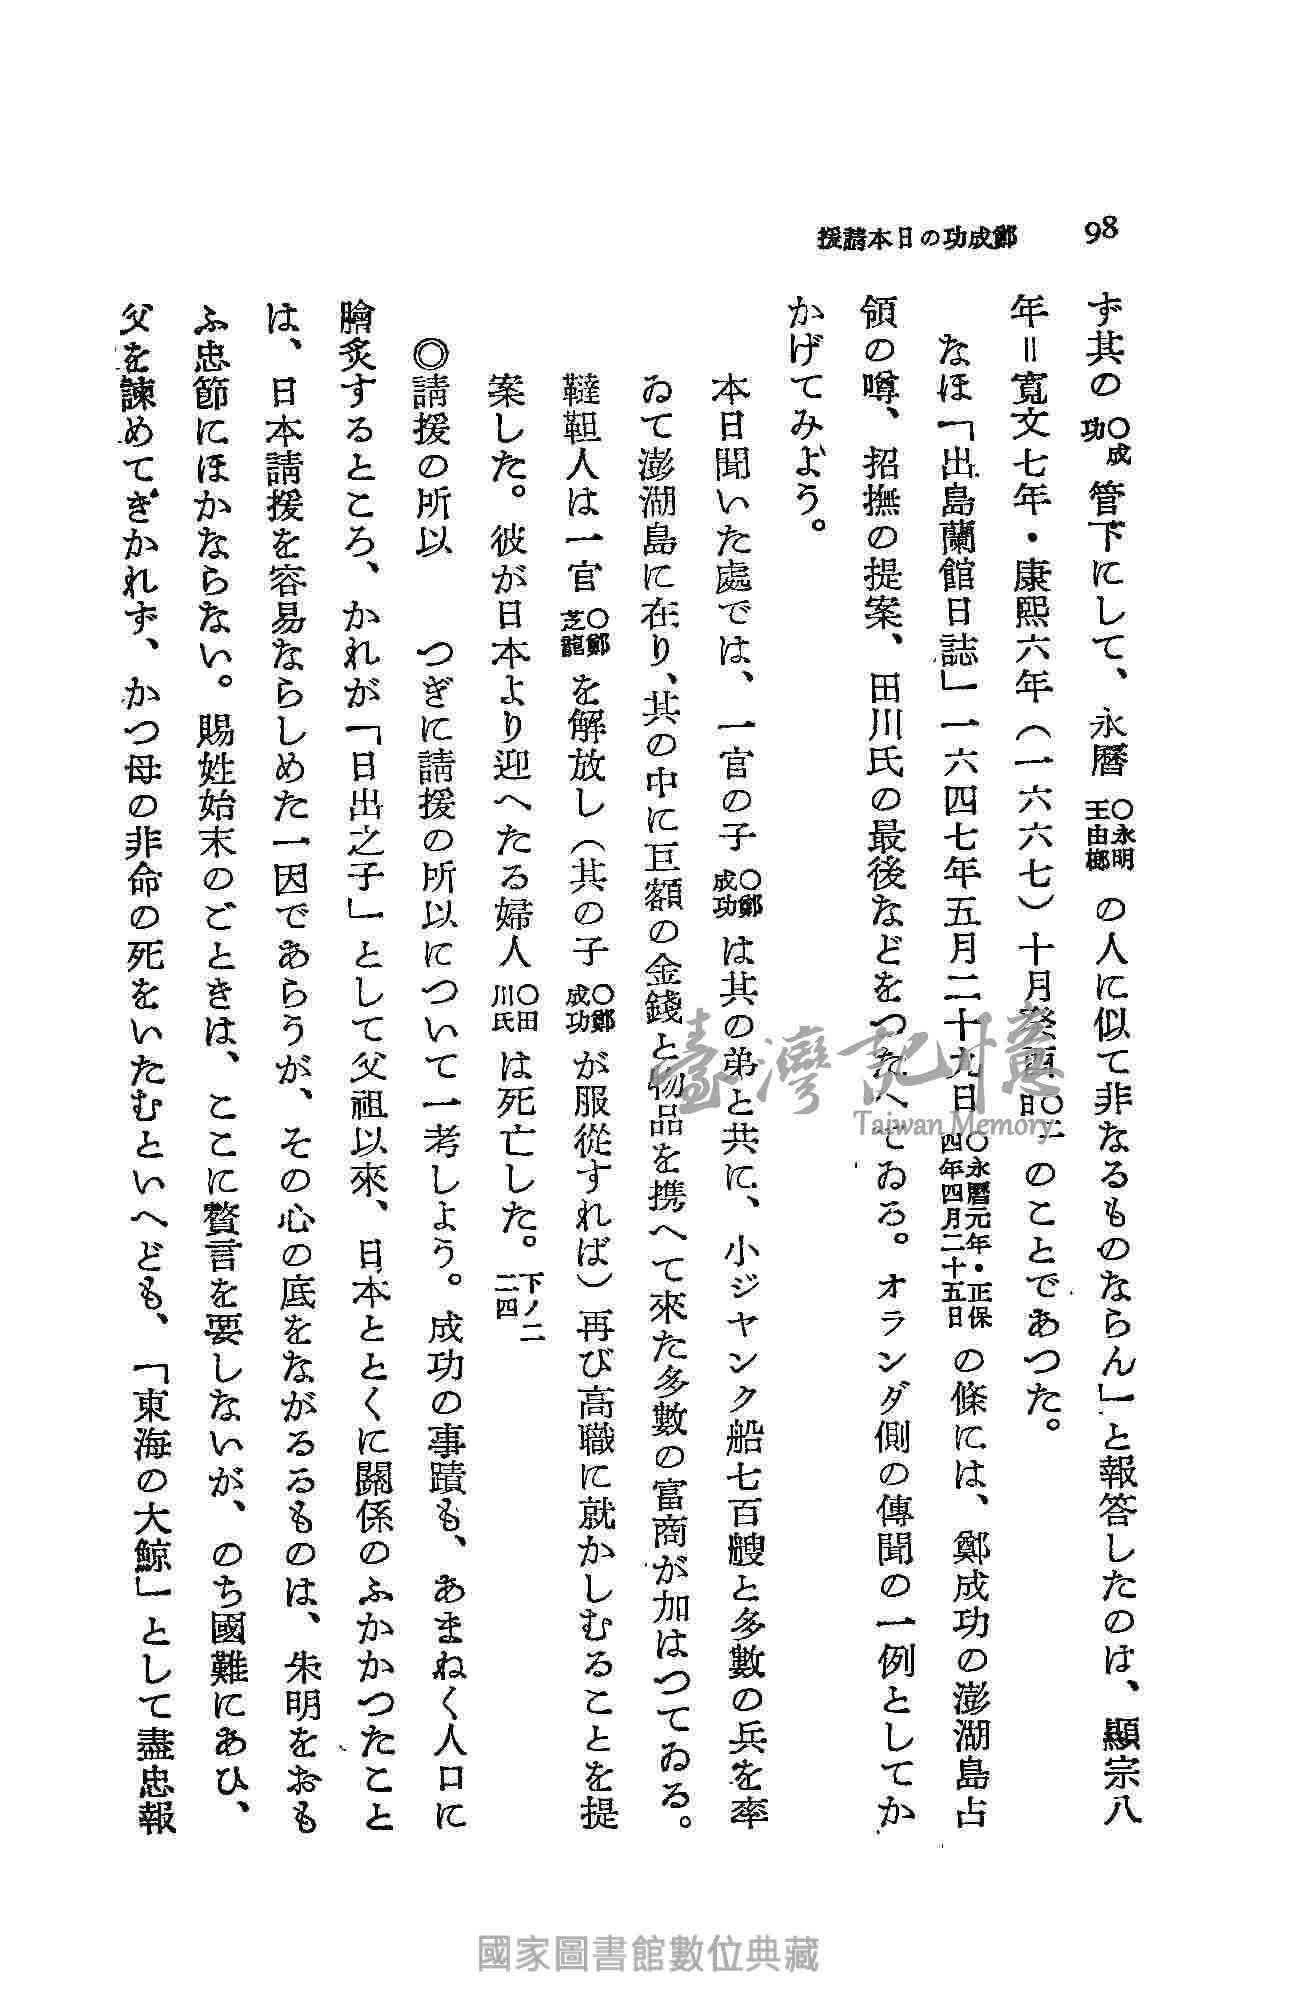 98
鄭成功の日本請援
ず其の〇成功管下にして、永曆〇永明王由榔の人に似て非なるものならん」と報答したのは、顯宗八
年＝寬文七年・康熙六年（一六六七）十月癸酉のことであつた。
なほ「出島蘭館日誌」一六四七年五月二十九日〇永曆元年・正保四年四月二十五日の條には、鄭成功の澎湖島占
領の噂、招撫の提案、田川氏の最後などをつたへてゐる。オランダ側の傳聞の一例としてか
かげてみよう。
本日聞いた處では、一官の子〇鄭成功は其の弟と共に、小ジヤンク船七百艘と多數の兵を率
ゐて澎湖島に在り、其の中に巨額の金錢と物品を携へて來た多數の富商が加はつてゐる。
韃靼人は一官〇鄭芝龍を解放し（其の子〇鄭成功が服從すれば）再び高職に就かしむることを提
案した。彼が日本より迎へたる婦人〇田川氏は死亡した。下ノ二二四
◎請援の所以　つぎに請援の所以について一考しよう。成功の事蹟も、あまねく人口に
膾炙するところ、かれが「日出之子」として父祖以來、日本ととくに關係のふかかつたこと
は、日本請援を容易ならしめた一因であらうが、その心の底をながるるものは、朱明をおも
ふ忠節にほかならない。賜姓始末のごときは、ここに贅言を要しないが、のち國難にあひ、
父を諫めてきかれず、かつ母の非命の死をいたむといへども、「東海の大鯨」として盡忠報
臺灣記憶
Taiwan Memory
國家圖書館數位典藏